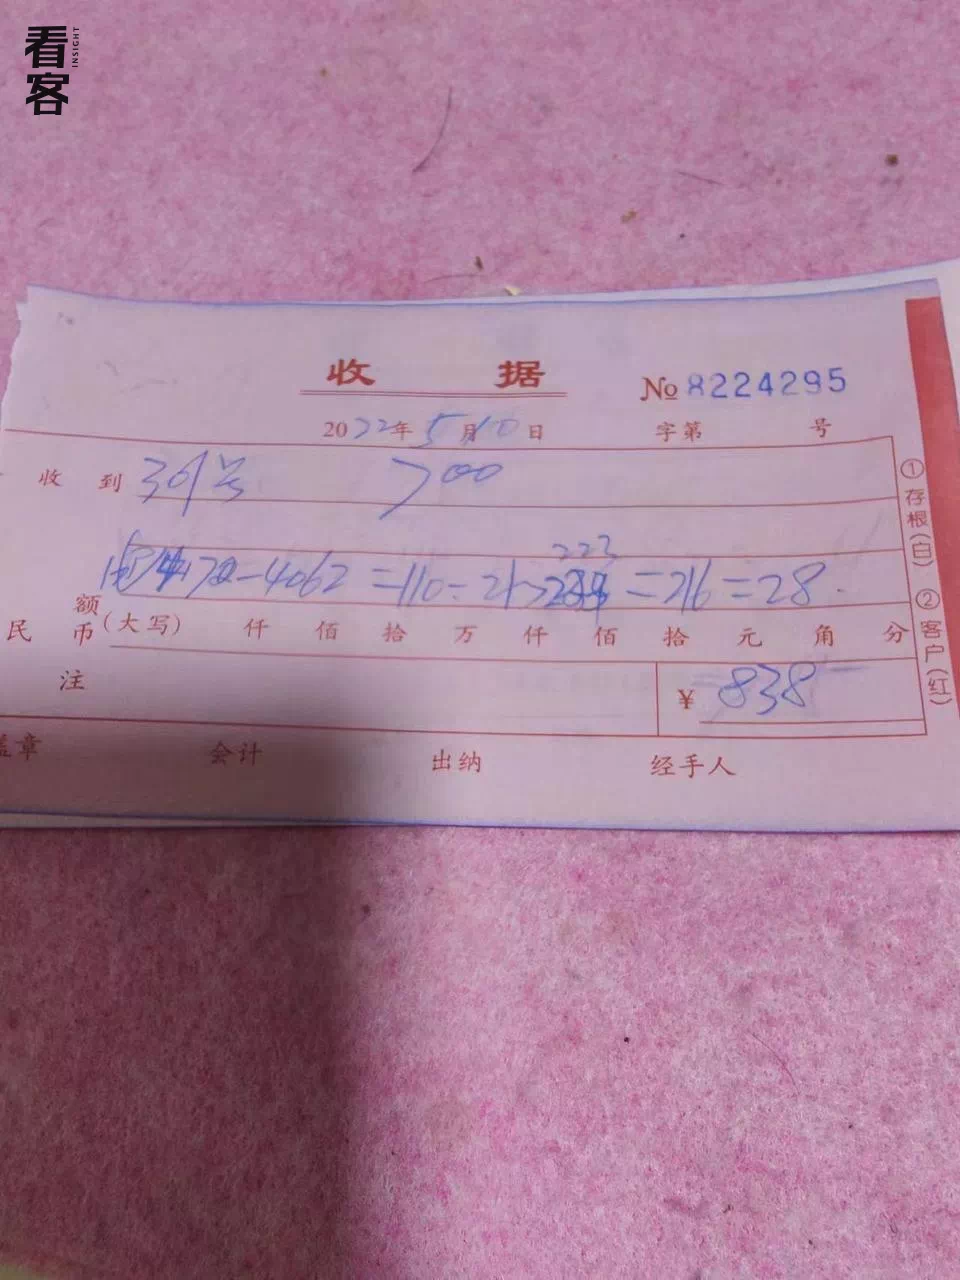 看客
INSIGHT
收 据
№ 8224295
2022年5月10日 字第 号
收到 301号 700
222
4172-4062=110= 216=28
额
民币(大写) 仟 佰 拾 万 仟 佰 拾 元 角 分
注 ¥ 838
盖章 会计 出纳 经手人
①存根(白) ②客户(红)